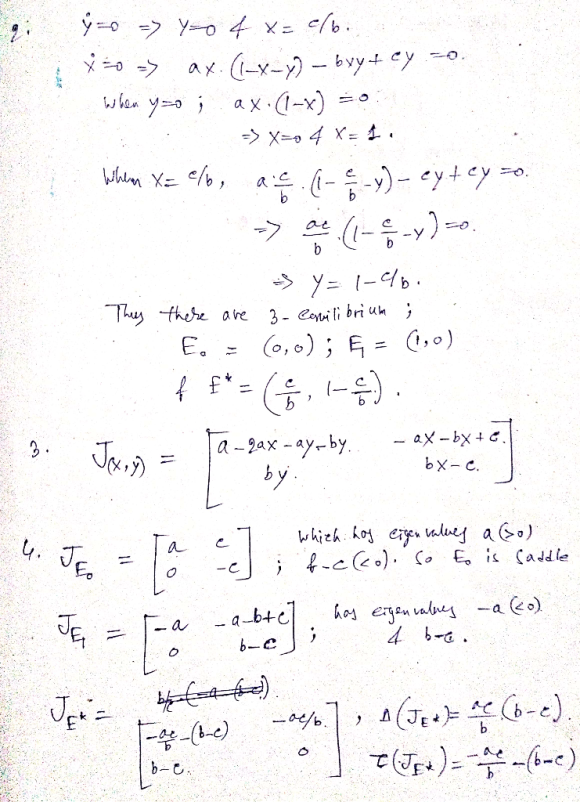 2. ẏ=0 => y=0 & x= c/b.
ẋ=0 => ax.(1-x-y) - bxy + cy =0.
When y=0 ; ax.(1-x) =0
=> x=0 & x= 1.
When x= c/b, a.c/b.(1- c/b -y) - cy + cy =0.
=> ac/b.(1- c/b -y)=0.
=> y= 1-c/b.
Thus there are 3- equilibrium ;
E₀ = (0,0) ; E₁ = (1,0)
& E* = (c/b, 1-c/b).
3. J(x,y) = [a-2ax-ay-by. -ax-bx+c.
by. bx-c.]
4. J_E₀ = [a c
0 -c] ; which has eigenvalues a(>0)
& -c(<0). So E₀ is saddle
J_E₁ = [-a -a-b+c
0 b-c] ; has eigenvalues -a(<0)
& b-c.
J_E* = [-ac/b -(b-c) -ac/b.
b-c. 0] , Δ(J_E*)= ac/b (b-c).
τ(J_E*)= -ac/b -(b-c)